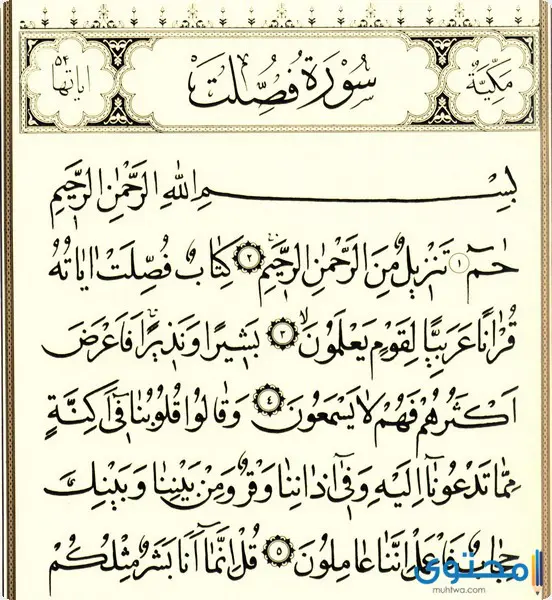 مَكِّيَّةٌ
سُورَةُ فُصِّلَتْ
اٰيَاتُهَا ٥٤
بِسْمِ اللّٰهِ الرَّحْمٰنِ الرَّحٖيمِ
حٰمٓ ﴿١﴾ تَنْزٖيلٌ مِنَ الرَّحْمٰنِ الرَّحٖيمِ ﴿٢﴾ كِتَابٌ فُصِّلَتْ اٰيَاتُهُ
قُرْاٰنًا عَرَبِيًّا لِقَوْمٍ يَعْلَمُونَ ﴿٣﴾ بَشٖيرًا وَنَذٖيرًا فَاَعْرَضَ
اَكْثَرُهُمْ فَهُمْ لَا يَسْمَعُونَ ﴿٤﴾ وَقَالُوا قُلُوبُنَا فٖٓى اَكِنَّةٍ
مِمَّا تَدْعُونَٓا اِلَيْهِ وَفٖٓى اٰذَانِنَا وَقْرٌ وَمِنْ بَيْنِنَا وَبَيْنِكَ
حِجَابٌ فَاعْمَلْ اِنَّنَا عَامِلُونَ ﴿٥﴾ قُلْ اِنَّمَٓا اَنَا۬ بَشَرٌ مِثْلُكُمْ
محتوى
muhtwa.com